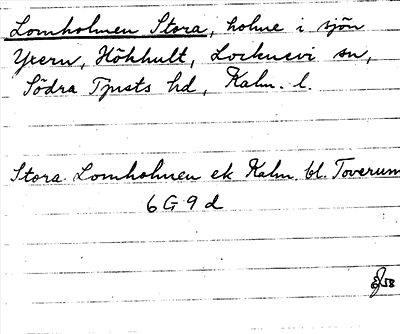 Lomholmen Stora, holme i sjön
Yxern, Hökhult, Locknevi sn,
Södra Tjusts hd, Kalm. l.
Stora Lomholmen ek Kalm. bl. Toverum
6 G 9 d
58